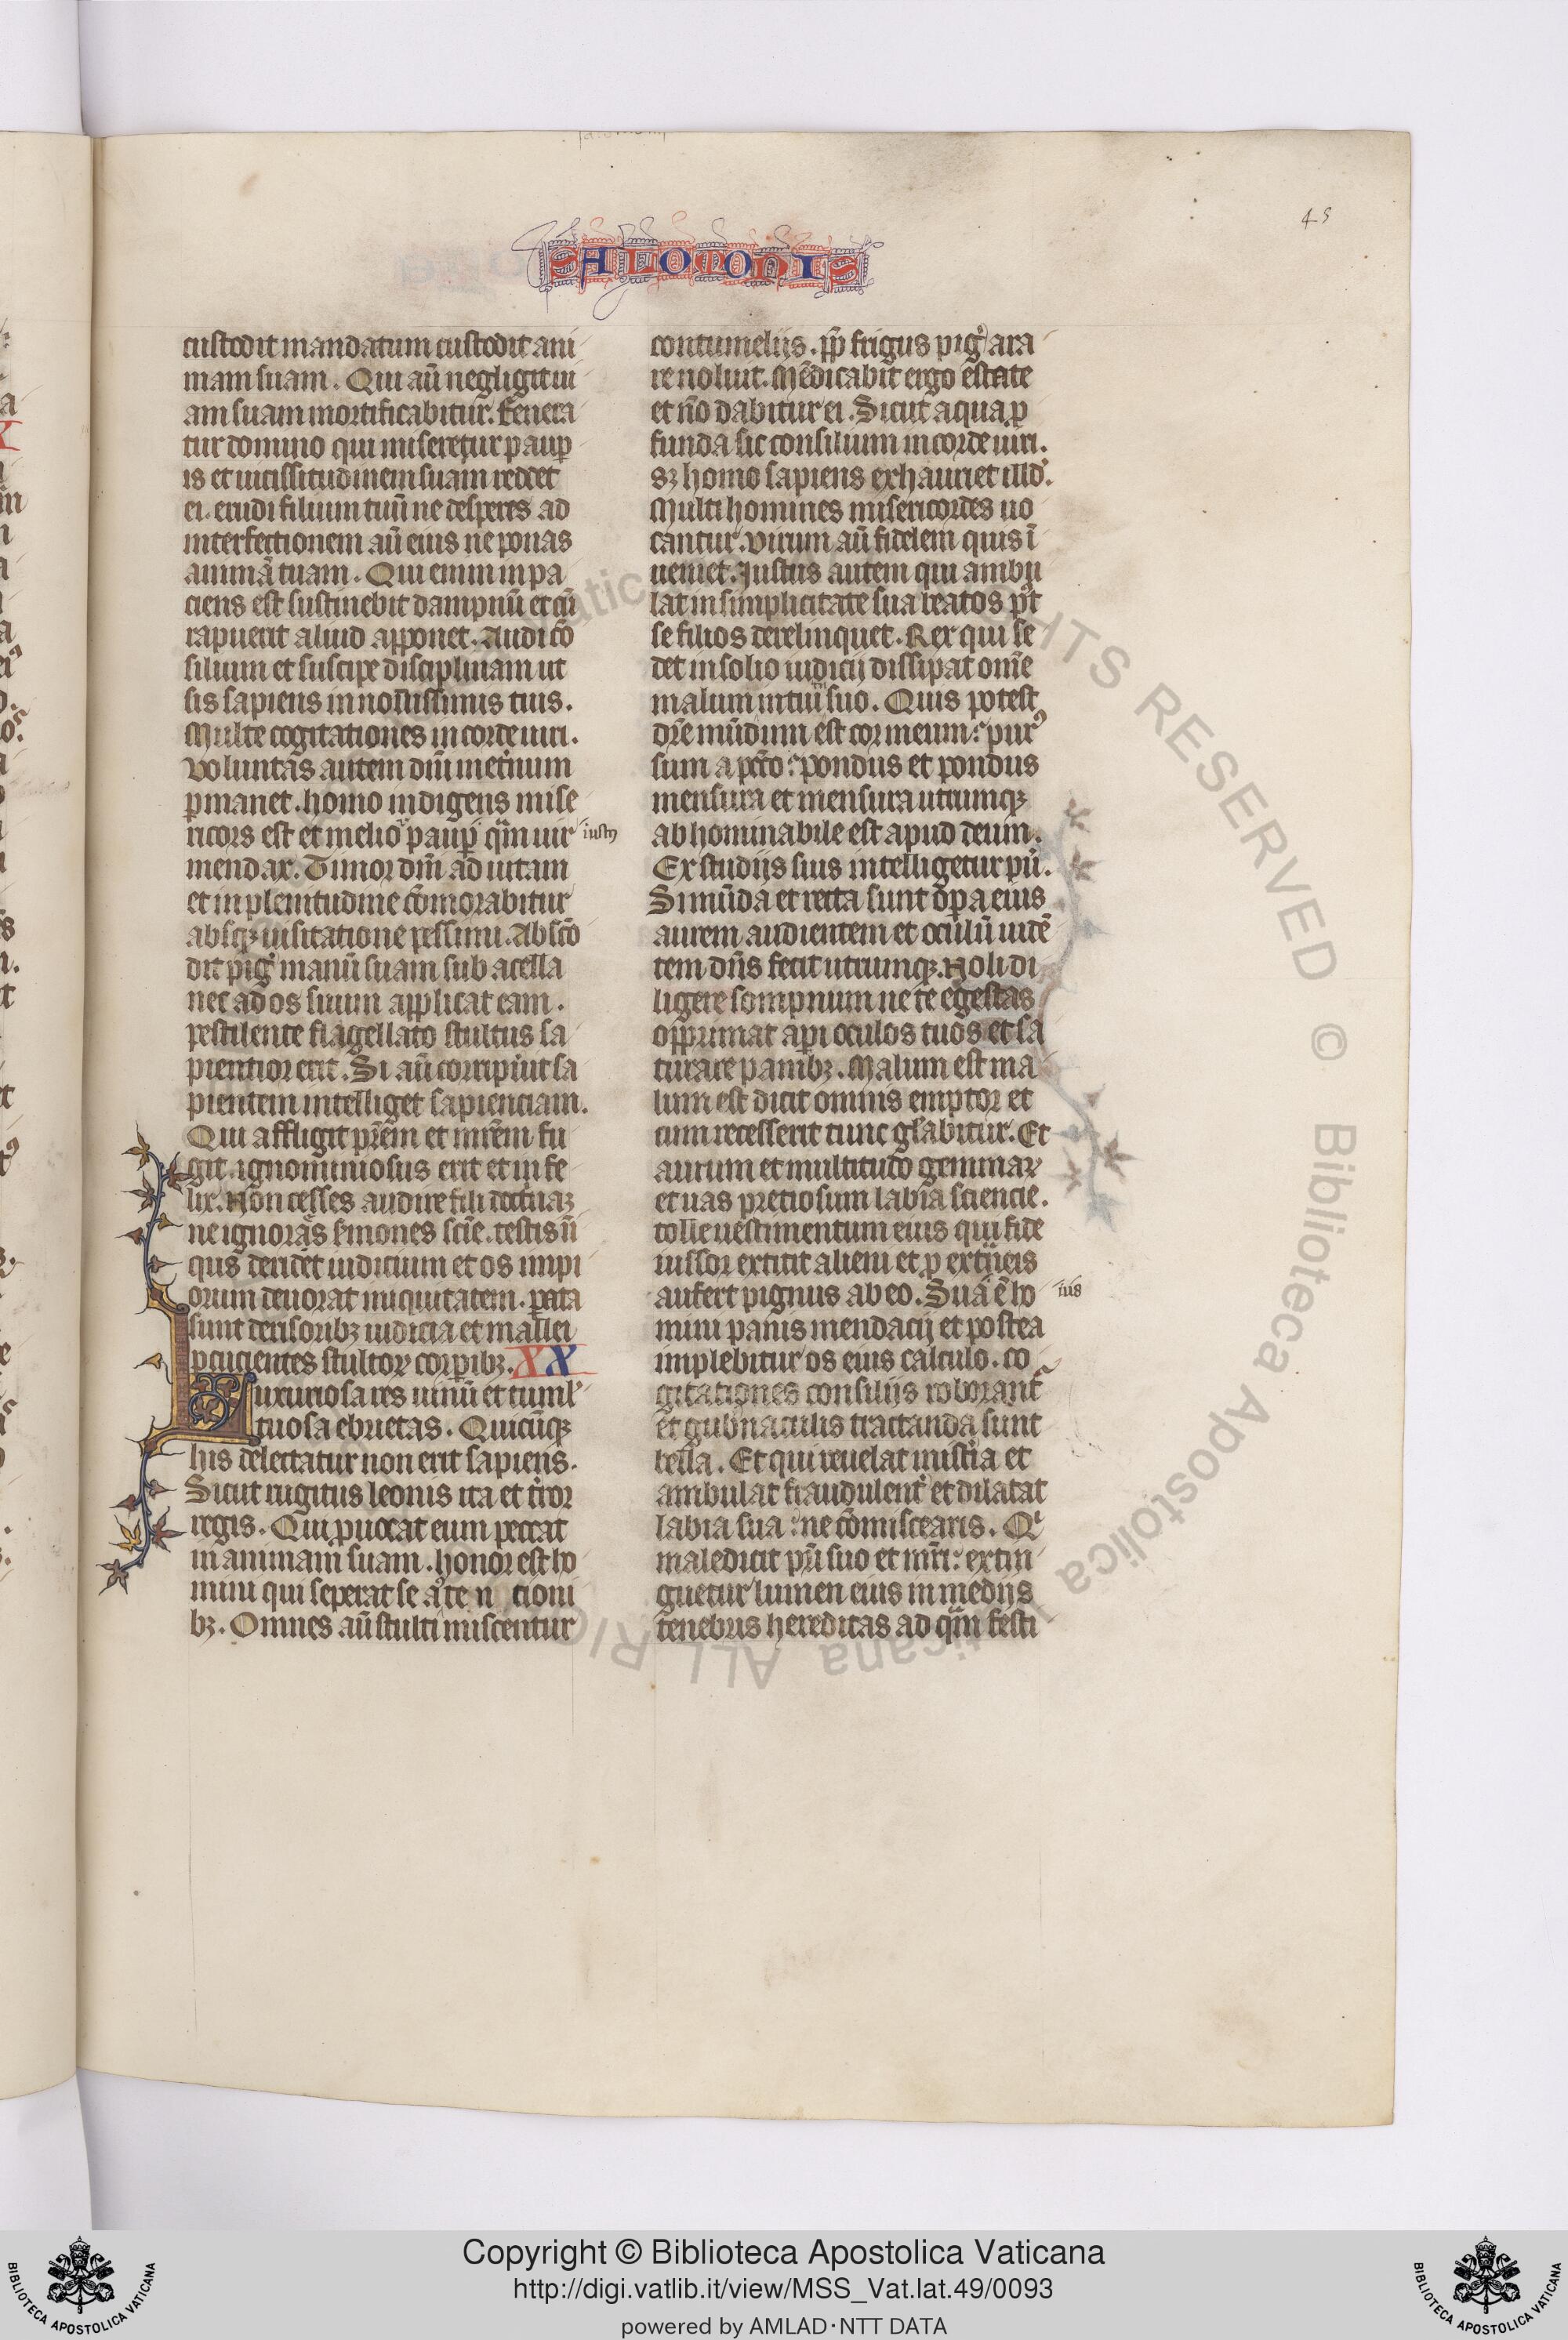 45
SALOMONIS
custodit mandatum custodit ani
mam suam. Qui aū negligit ui
am suam mortificabitur. fenera
tur domino qui miseretur paup
is et uicissitudinem suam reddet
ei. erudi filium tuū ne desperes ad
interfectionem aū eius ne ponas
animā tuam. Qui enim inpa
ciens est sustinebit dampnū et cū
rapuerit aliud apponet. Audi cō
silium et suscipe disciplinam ut
sis sapiens in nouissimis tuis.
Multe cogitationes in corde uiri.
voluntas autem dn̄i in eternum
ꝑmanet. homo indigens mise
ricors est et melior paup qm uir iustꝰ
mendax. Timor dn̄i ad uitam
et in plenitudine cōmorabitur
absqꝫ uisitatione pessimi. Abscō
dit pigꝰ manū suam sub acella
nec ad os suum applicat eam.
pestilente flagellato stultus sa
pientior erit. Si aū corripiut sa
pientem intelliget sapienciam.
Qui affligit pr̄em et mr̄em fu
git ignominiosus erit et infe
lix. Non cesses audire fili doctnaꝫ
ne ignoras s̄mones sciē. testis in̄
quꝰ deridet iudicium et os impi
orum deuorat iniquitatem. parata
sunt derisoribꝫ iudicia et mallei
ꝑcucientes stultoꝝ corpibꝫ. XX
Luxuriosa res uinū et tumul
tuosa ebrietas. Quicūqꝫ
his delectatur non erit sapiens.
Sicut rugitus leonis ita et t̄ror
regis. Qui ꝓuocat eum peccat
in animam suam. honor est ho
mini qui seperat se a ꝯten tioni
bꝫ. Omnes aū stulti miscentur
contumelijs. ꝓp̄ frigus pigꝰ ara
re noluit. Mēdicabit ergo estate
et nō dabitur ei. Sicut aqua ꝓ
funda sic consilium in corde uiri.
sꝫ homo sapiens exhauriet illd.
Multi homines misericordes uo
cantur. virum aū fidelem quis ī
ueniet. Justus autem qui ambu
lat in simplicitate sua beatos pꝰt
se filios derelinquet. Rex qui se
det in solio iudicij dissipat omē
malum intuitu suo. Quis potest
dr̄e mūdum est cor meum: purꝰ
sum a pcc̄o: pondus et pondus
mensura et mensura utrumqꝫ
abhominabile est apud deum.
Ex studijs suis intelligetur pū.
Si mūda et recta sunt opa eius
aurem audientem et oculū uidē
tem dn̄s fecit utrumqꝫ. Noli di
ligere sompnum ne te egestas
opprimat api oculos tuos et sa
turare panibꝫ. Malum est ma
lum est dicit omnis emptor et
cum recesserit tunc gl̄abitur. Et
aurum et multitudo gemmaꝝ
et uas pretiosum labia sciencie.
tolle uestimentum eius qui fide
iussor extitit alieni et ꝓ ext̄neis
aufert pignus ab eo. Suauis ē ho
mini panis mendacij et postea
implebitur os eius calculo. co
gitationes consilijs roborant̄
et gub̄naculis tractanda sunt
bella. Et qui reuelat mist̄ia et
ambulat fraudulent̄ et dilatat
labia sua: ne cōmiscearis. Qi
maledicit pr̄i suo et mr̄i: extin
guetur lumen eius in medijs
tenebris hereditas ad qm̄ festi
Copyright © Biblioteca Apostolica Vaticana
http://digi.vatlib.it/view/MSS_Vat.lat.49/0093
powered by AMLAD·NTT DATA
BIBLIOTECA APOSTOLICA VATICANA
BIBLIOTECA APOSTOLICA VATICANA